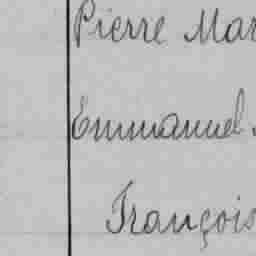 Pierre Mar
Emmanuel
François